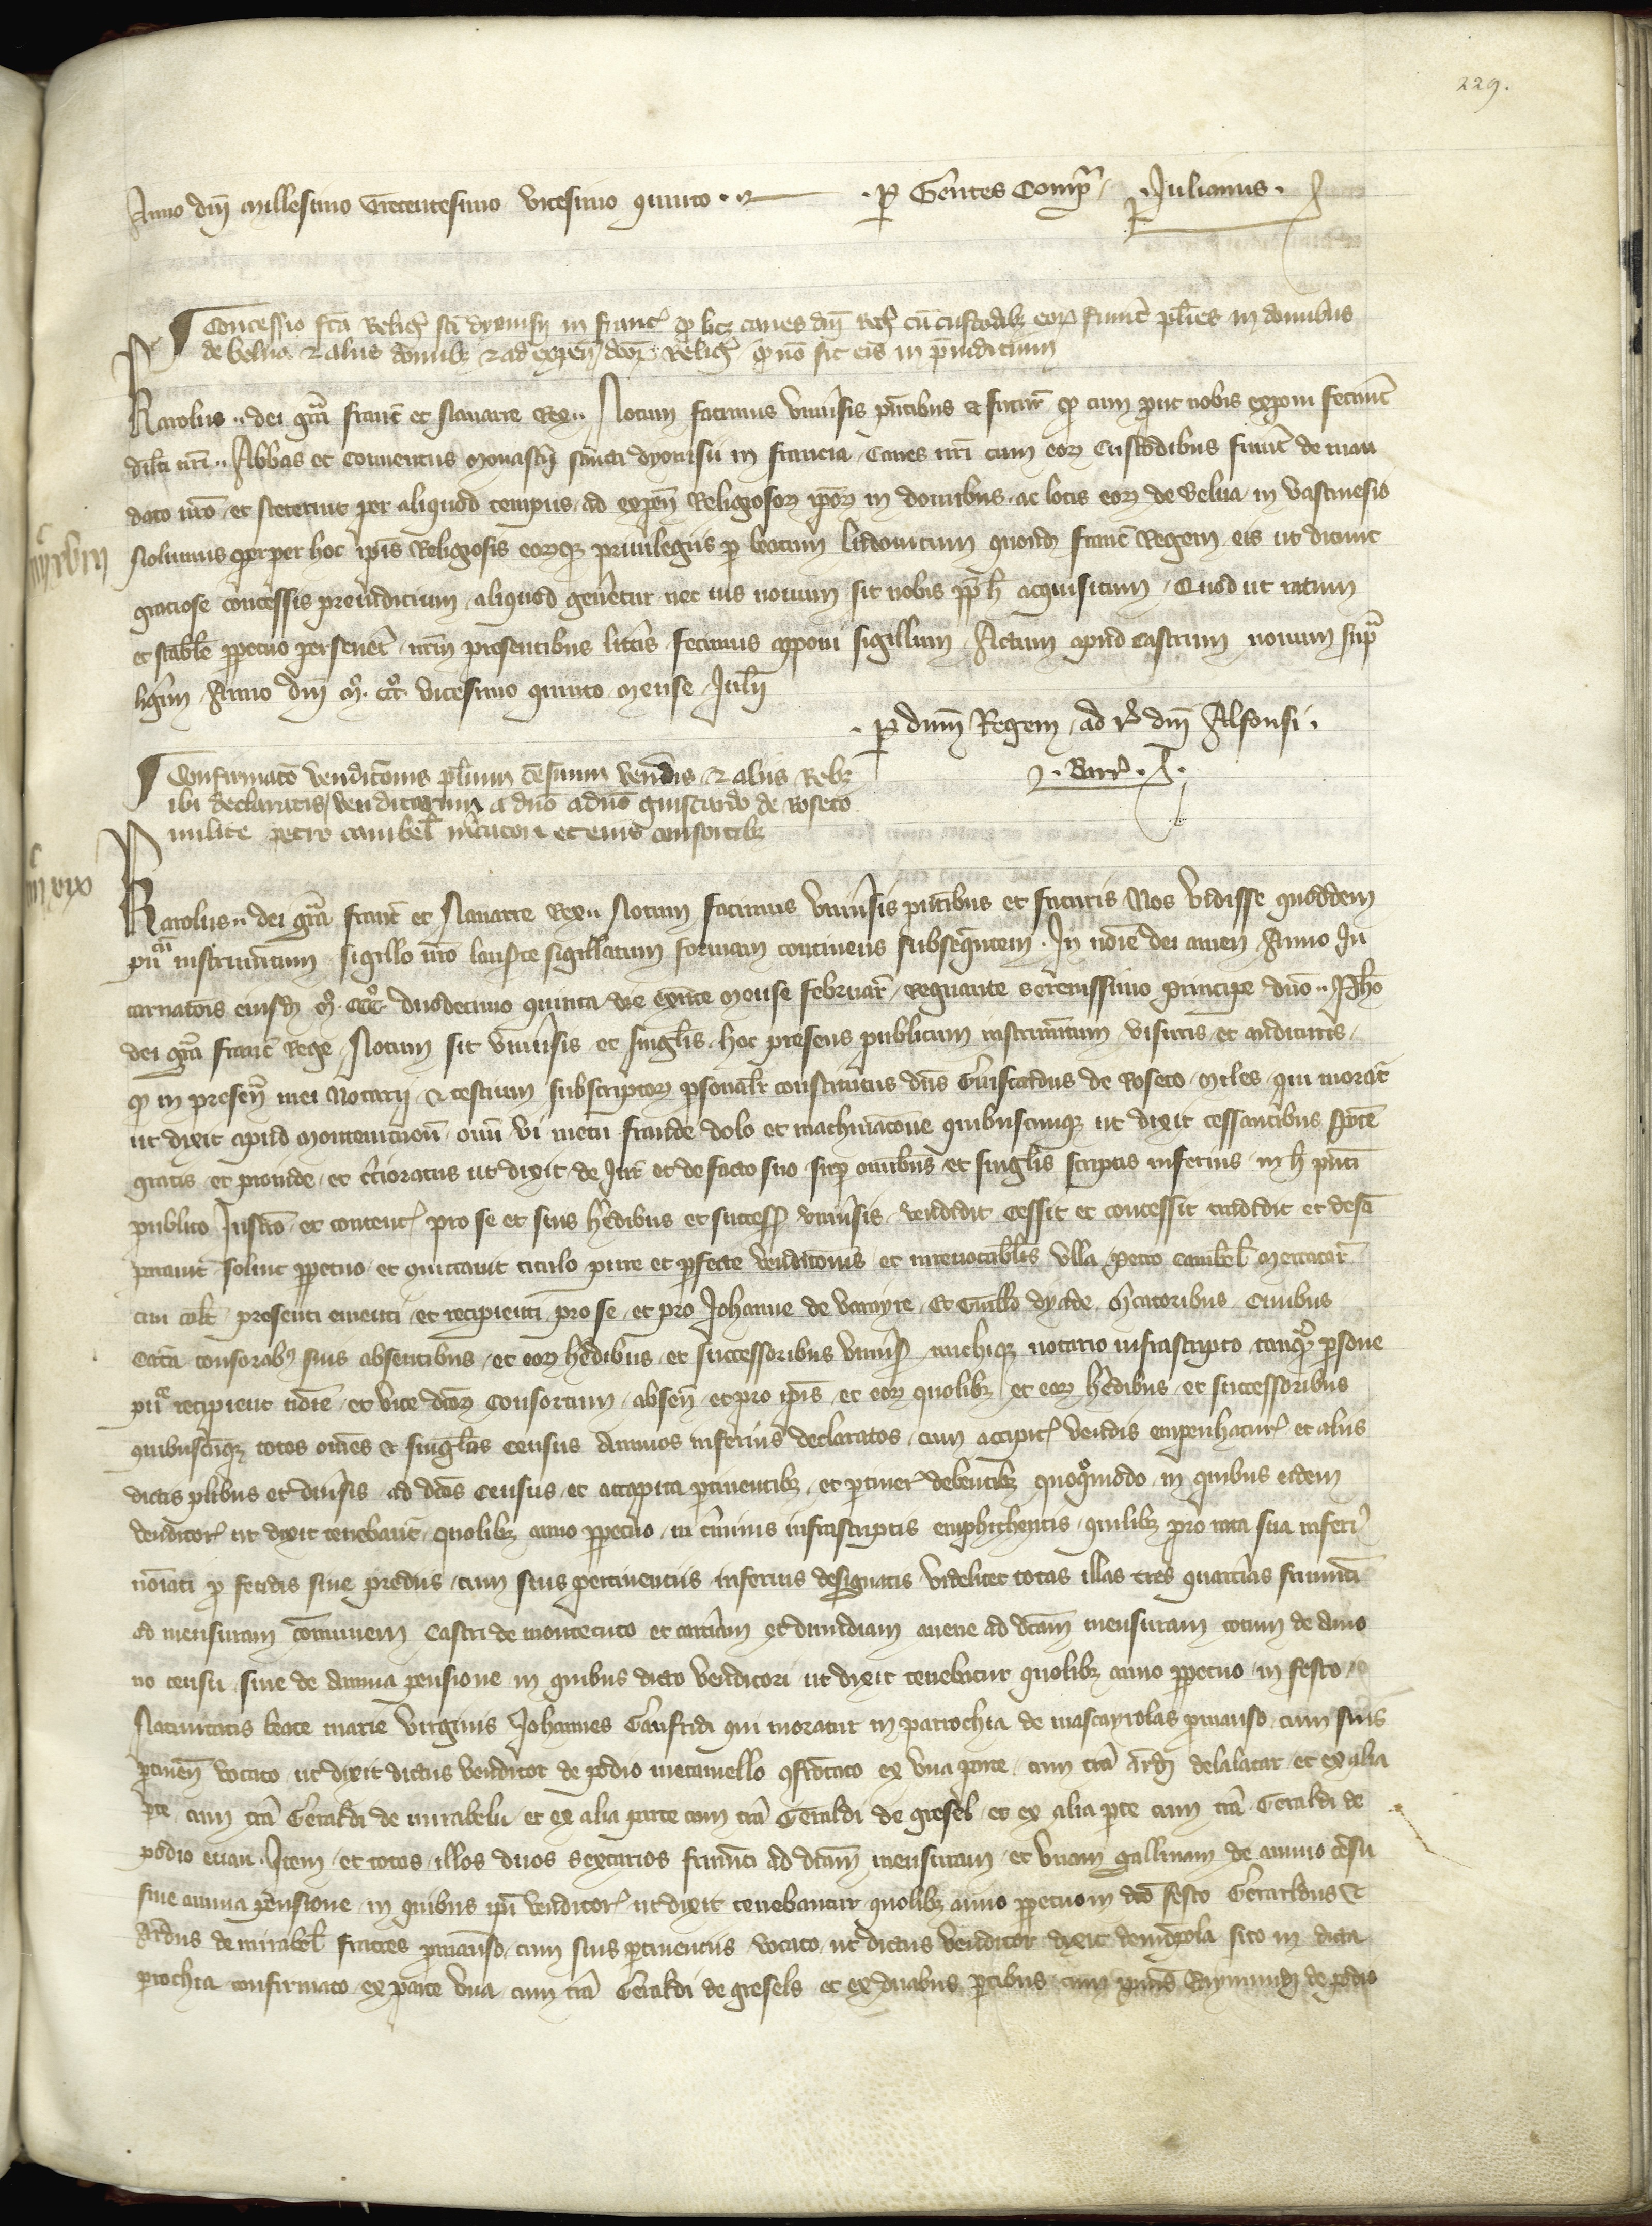 229.
Anno dnī millesimo Trecentesimo vicesimo quinto ·
· p Gentes Comp̄ · Julianus ·
Concessio fcā Religͥ sci dyonisij in francͥ qͩ licꝫ canes dnī Regͥ cū custodibꝫ eoꝝ fuerīt pluries in domibus
de belua ⁊ aliis domibꝫ ⁊ ad expen̄ dcoꝝ Religͥ qͩ nō sit eis in preiudicium
Karolus dei grā francͥ et Nauarre Rex Notum facimus vniuersis pn̄tibus et futurͥ qͩ cum prout nobis exponi fecerūt
dilcī nrī Abbas et conuentus monasterij sancti dyonisii in francia Canes nrī cum eoꝝ Custodibus fuerīt de man
dato nrō et steterint per aliquod tempus ad expen̄ Religiosoꝝ ip̄oꝝ in domibus ac locis eoꝝ de belua in vastinesio
Nolumus qͩ per hoc ip̄is Religiosis eoꝝqꝫ priuilegiis p beatum ludouicum quondā francͥ Regem eis ut dicunt
graciose concessis preiudicium aliquod generetur nec ius nouum sit nobis ppͭ h̄ acquisitum Quod ut ratum
et stabile ppetuo perseueret nrm̄ presentibus litteris fecimus apponi sigillum Actum apud Castrum nouum supͣ
ligerim Anno dnī mͦ· cccͦ· vicesimo quinto mense Julij
· p dnm̄ Regem ad r̄ dnī Alfonsi ·
J· Barr̄ ·
Confirmatō vendicionis pluriū censuum vendis ⁊ aliis Rebꝫ
ibi declaratis venditarum a dnō a dnō guiscardo de roseto
milite petro cambel mercatori et euis consortibꝫ
Karolus dei grā francͥ et Nauarre Rex Notum facimus vniuersis pn̄tibus et futuris Nos vidisse quoddem
pu͡m instrumentum sigillo nrō sigillatum formam continens subsequentem · In noīe dei amen Anno In
carnatōis eiusdē mͦ· cccͦ· duodecimo quinta die exeunte mense februar̄ regnante serenissimo principe dnō Ph̄o
dei grā francͥ Rege Notum sit vniuersis et singulis hoc presens publicum instrumentum visuris et audituris
qͩ in presen̄ mei Notarij ⁊ testium subscriptoꝝ psonaliter constitutus dn̄s Guiscardus de roseto miles qui moratͬ
ut dixit apud montemcucum omī vi metu fraude dolo et machinacōne quibuscumqꝫ ut dixit cessantibus sponte
gratis et prouide et certioratus ut dixit de Jure et de facto suo sup omnibus et singulis scriptis inferius in h̄ pn̄ti
publico Instrō et contentͥ pro se et suis heredibus et successͥ vniuersis vendidit cessit et concessit tradidit et desā
parauit soluit ppetuo et quittauit titulo pure et pfecte vendicionis et irreuocabilis petro cambel mercatorͥ
presenti ementi et recipienti pro se et pro Johanne de varayre et Guillo dyade mercatoribus ciuibus
consortibus suis absentibus et eoꝝ heredibus et successoribus vniuersͥ michiqꝫ notario infrascripto tanqͣ psone
pu͡ᵉ recipienti noīe et vice dcoꝝ consortium absen̄ et pro ip̄is et eoꝝ quolibꝫ et eoꝝ heredibus et successoribus
quibuscūqꝫ totos omēs ⁊ singulos census annuos inferius declaratos cum acapitͥ vendis empenhaturͥ et aliis
dictis pluribus et diuersis ad dcos census et accapita ptinentibꝫ et ptinerͤ debentibꝫ quoqͦmodo in quibus eidem
venditorͥ ut dixit tenebant quolibꝫ anno ppetuo in terminis infrascriptis emphitheotis quilibꝫ pro rata sua inferiͥ
noīati p feudis siue prediis cum suis pertinentiis inferius designatis videlicet totas illas tres quartas frumenti
ad mensuram communem Castri de montecuco et cartam et dimidiam auene ad dcam mensuram totum de annuo
no censu siue de annua pensione in quibus dicto venditori ut dixit tenebatur quolibꝫ anno ppetuo in festo
Natiuitatis beate marie virginis Johannes Gaufridi qui moratur in parrochia de mascayrolas p manso cum suis
ptinen̄ vocato ut dixit dictus venditor de podio metamello cōfrōtato ex vna parte cum trā Arnd̄ delalatar et ex alia
pte cum trā Geraldi de mirabelu et ex alia parte cum trā Geraldi de gresel et ex alia pte cum trā Geraldi de
podio euan Item et totos illos duos sextarios frumenti ad dcam mensuram et vnam gallinam de annuo censu
siue annua pensione in quibus ipi venditorͥ ut dixit tenebantur quolibꝫ anno ppetuo in dco festo Geraldus ⁊
Ardus de mirabel fratres p manso cum suis ptinentiis vocato ut dictus venditor dixit sito in dicta
prochia confirmato ex parte vna cum trā Geraldi de gresels et ex duabus ptibus cum Raymundi de podio